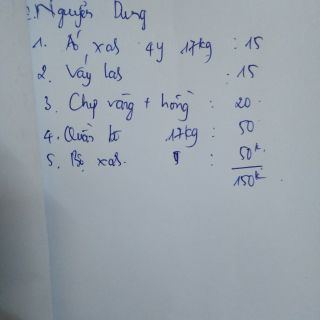 2. Nguyễn Dung
1. Áo xas 4y 17kg : 15
2. Váy las : 15
3. Chip vàng + hồng : 20
4. Quần bò 17kg : 50
5. Bộ xas. : 50k
150k